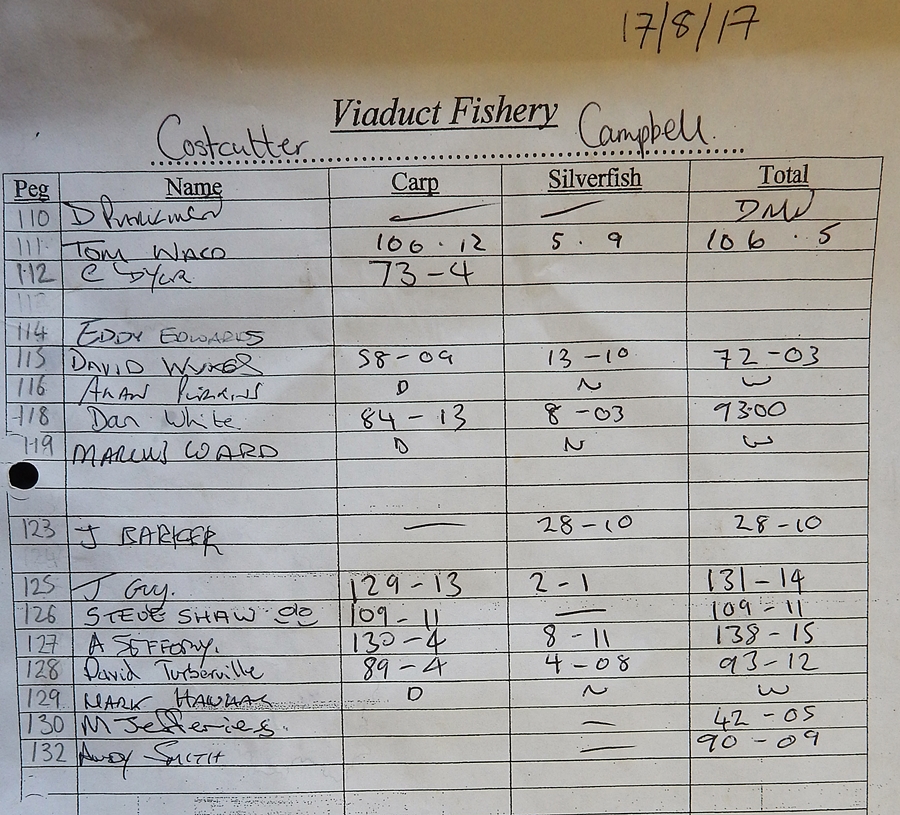 17/8/17
Viaduct Fishery
Costcutter Campbell.
Peg Name Carp Silverfish Total
110 D DNW
111 TOM WACO 106.12 5.9 106..5
112 C 73-4
114 EDDY EDWARDS
115 DAVID 58-09 13-10 72-03
116 ALAN D N W
118 Dan White 84-13 8-03 93.00
119 MARCUS WARD D N W
123 J BARKER — 28-10 28-10
125 J Guy. 129-13 2-1 131-14
126 STEVE SHAW 109-11 — 109-11
127 A 130-4 8-11 138-15
128 David Turberville 89-4 4-08 93-12
129 MARK D N W
130 M Jefferies. — 42-05
132 Andy SMITH — 90-09